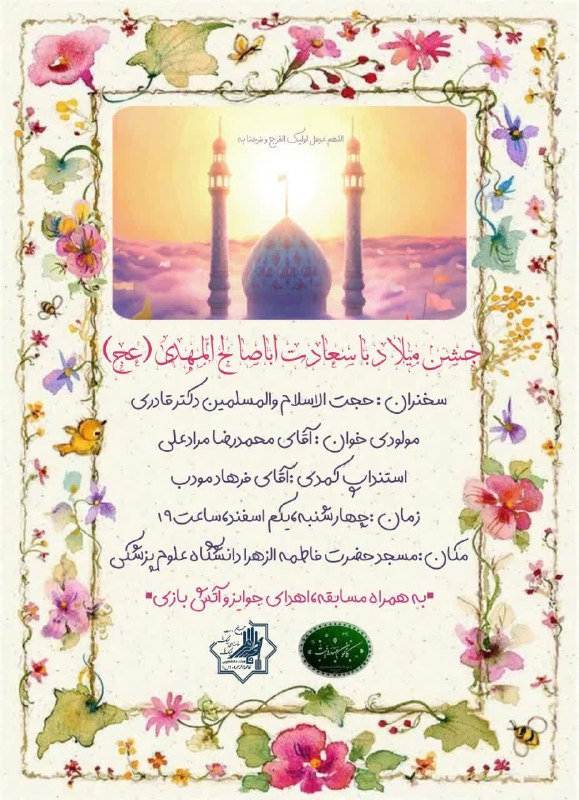 اللهم عجل لولیک الفرج و فرجنا به
جشن میلاد با سعادت اباصالح المهدی (عج)
سخنران : حجت الاسلام والمسلمین دکتر قادری
مولودی خوان : آقای محمدرضا مرادعلی
استنداپ کمدی :آقای فرهاد مودب
زمان :چهارشنبه،یکم اسفند،ساعت۱۹
مکان :مسجد حضرت فاطمه الزهرا دانشگاه علوم پزشکی
*به همراه مسابقه،اهدای جوایز و آتش بازی*